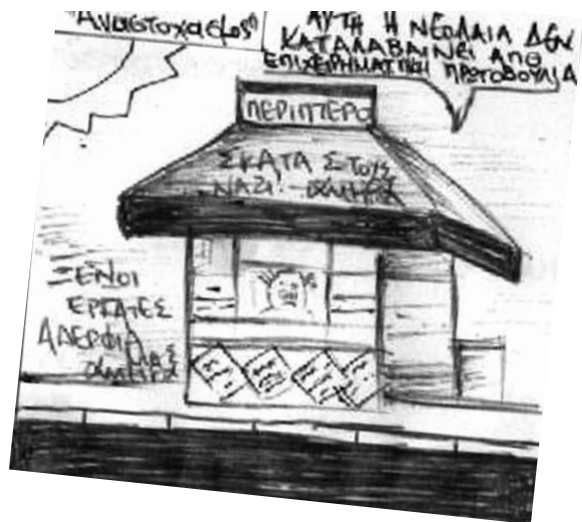 "Αναστοχασμος"
ΑΥΤΗ Η ΝΕΟΛΑΙΑ ΔΕΝ
ΚΑΤΑΛΑΒΑΙΝΕΙ ΑΠΟ
ΕΠΙΧΕΙΡΗΜΑΤΙΚΗ ΠΡΩΤΟΒΟΥΛΙΑ
ΠΕΡΙΠΤΕΡΟ
ΣΚΑΤΑ ΣΤΟΥΣ
ΝΑΖΙ
ΞΕΝΟΙ
ΕΡΓΑΤΕΣ
ΑΔΕΡΦΙΑ
ΜΑΣ